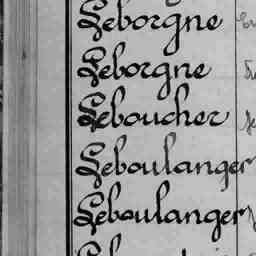 Leborgne
Leborgne
Leboucher
Leboulanger
Leboulanger